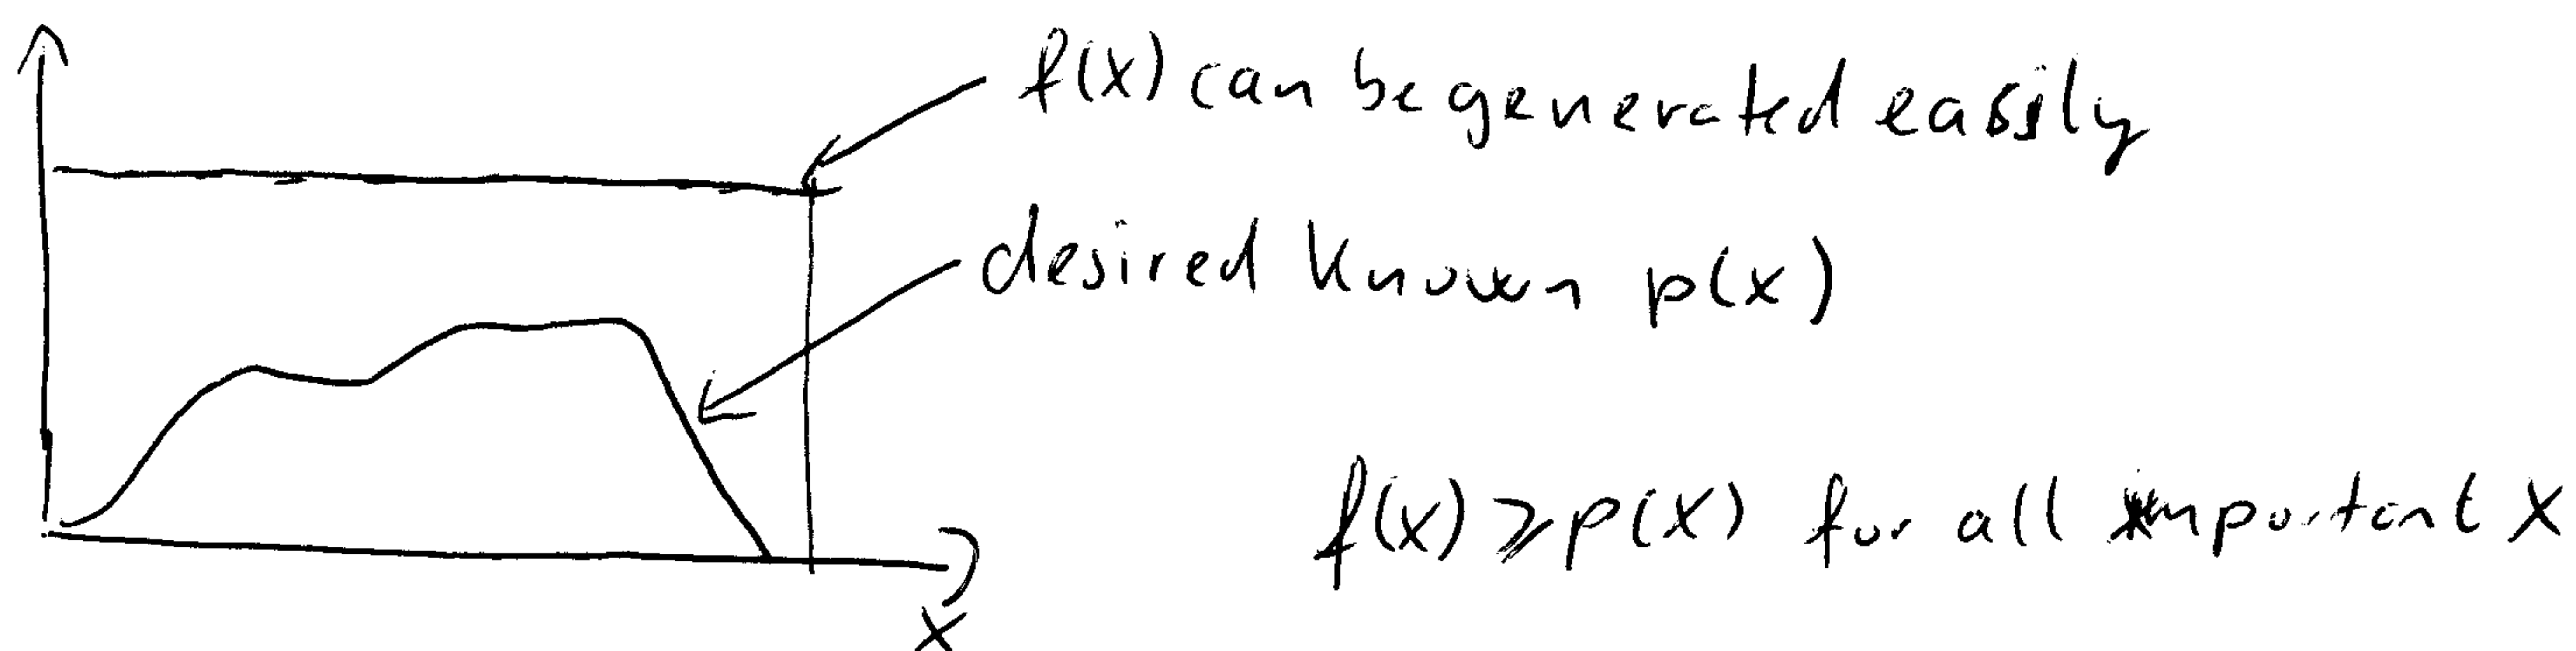 f(x) can be generated easily
desired known p(x)
f(x) ⩾ p(x) for all important x
x